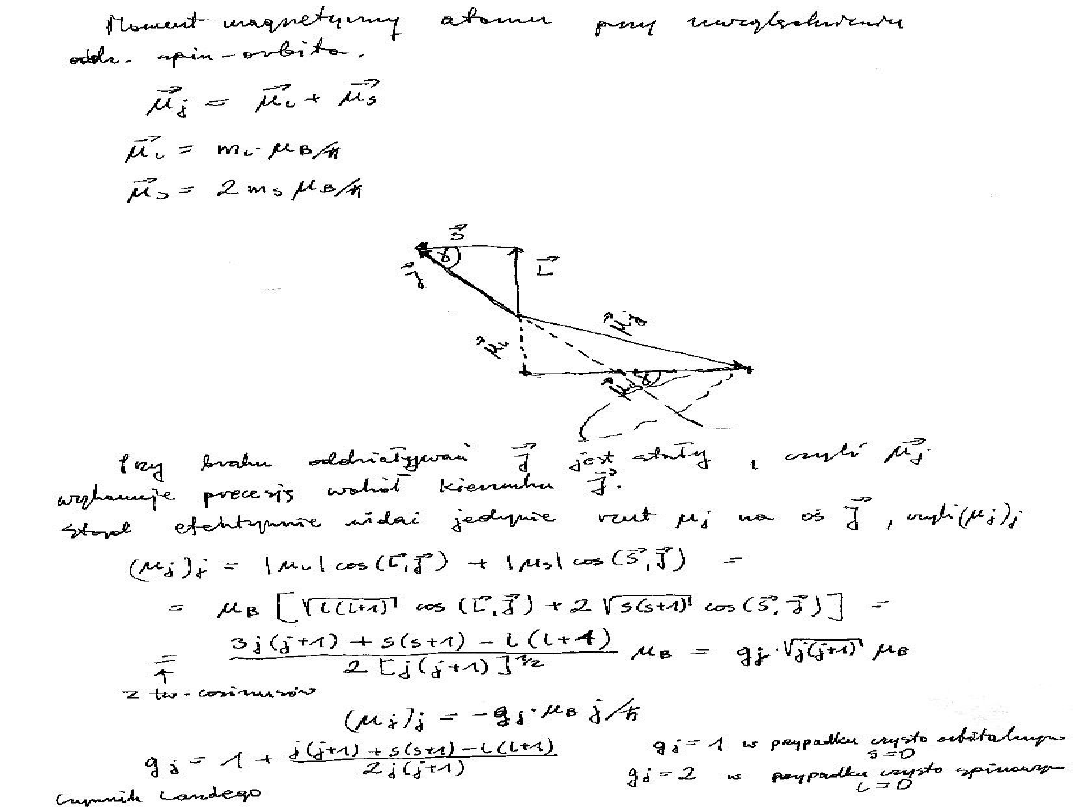 Moment magnetyczny atomu przy uwzględnieniu
oddz. spin-orbita.
μ⃗j = μ⃗L + μ⃗s
μ⃗L = mL·μB/ħ
μ⃗s = 2 ms μB/ħ
s⃗
γ
j⃗
L⃗
μ⃗j
μ⃗L
μ⃗s
γ
Przy braku oddziaływań j⃗ jest stały, czyli μ⃗j
wykonuje precesję wokół kierunku j⃗.
Stąd efektywnie widać jedynie rzut μj na oś j⃗, czyli (μj)j
(μj)j = |μL| cos(L⃗,j⃗) + |μs| cos(s⃗,j⃗) =
= μB [√l(l+1) cos(L⃗,j⃗) + 2 √s(s+1) cos(s⃗,j⃗)] =
= 3j(j+1) + s(s+1) - l(l+1) / 2 [j(j+1)]^1/2 μB = gj·√j(j+1) μB
↑
z tw. cosinusów
(μj)j = -gj·μB j/ħ
gj = 1 + j(j+1) + s(s+1) - l(l+1) / 2j(j+1)
czynnik Landego
gj = 1 w przypadku czysto orbitalnym
s=0
gj = 2 w przypadku czysto spinowym
L=0